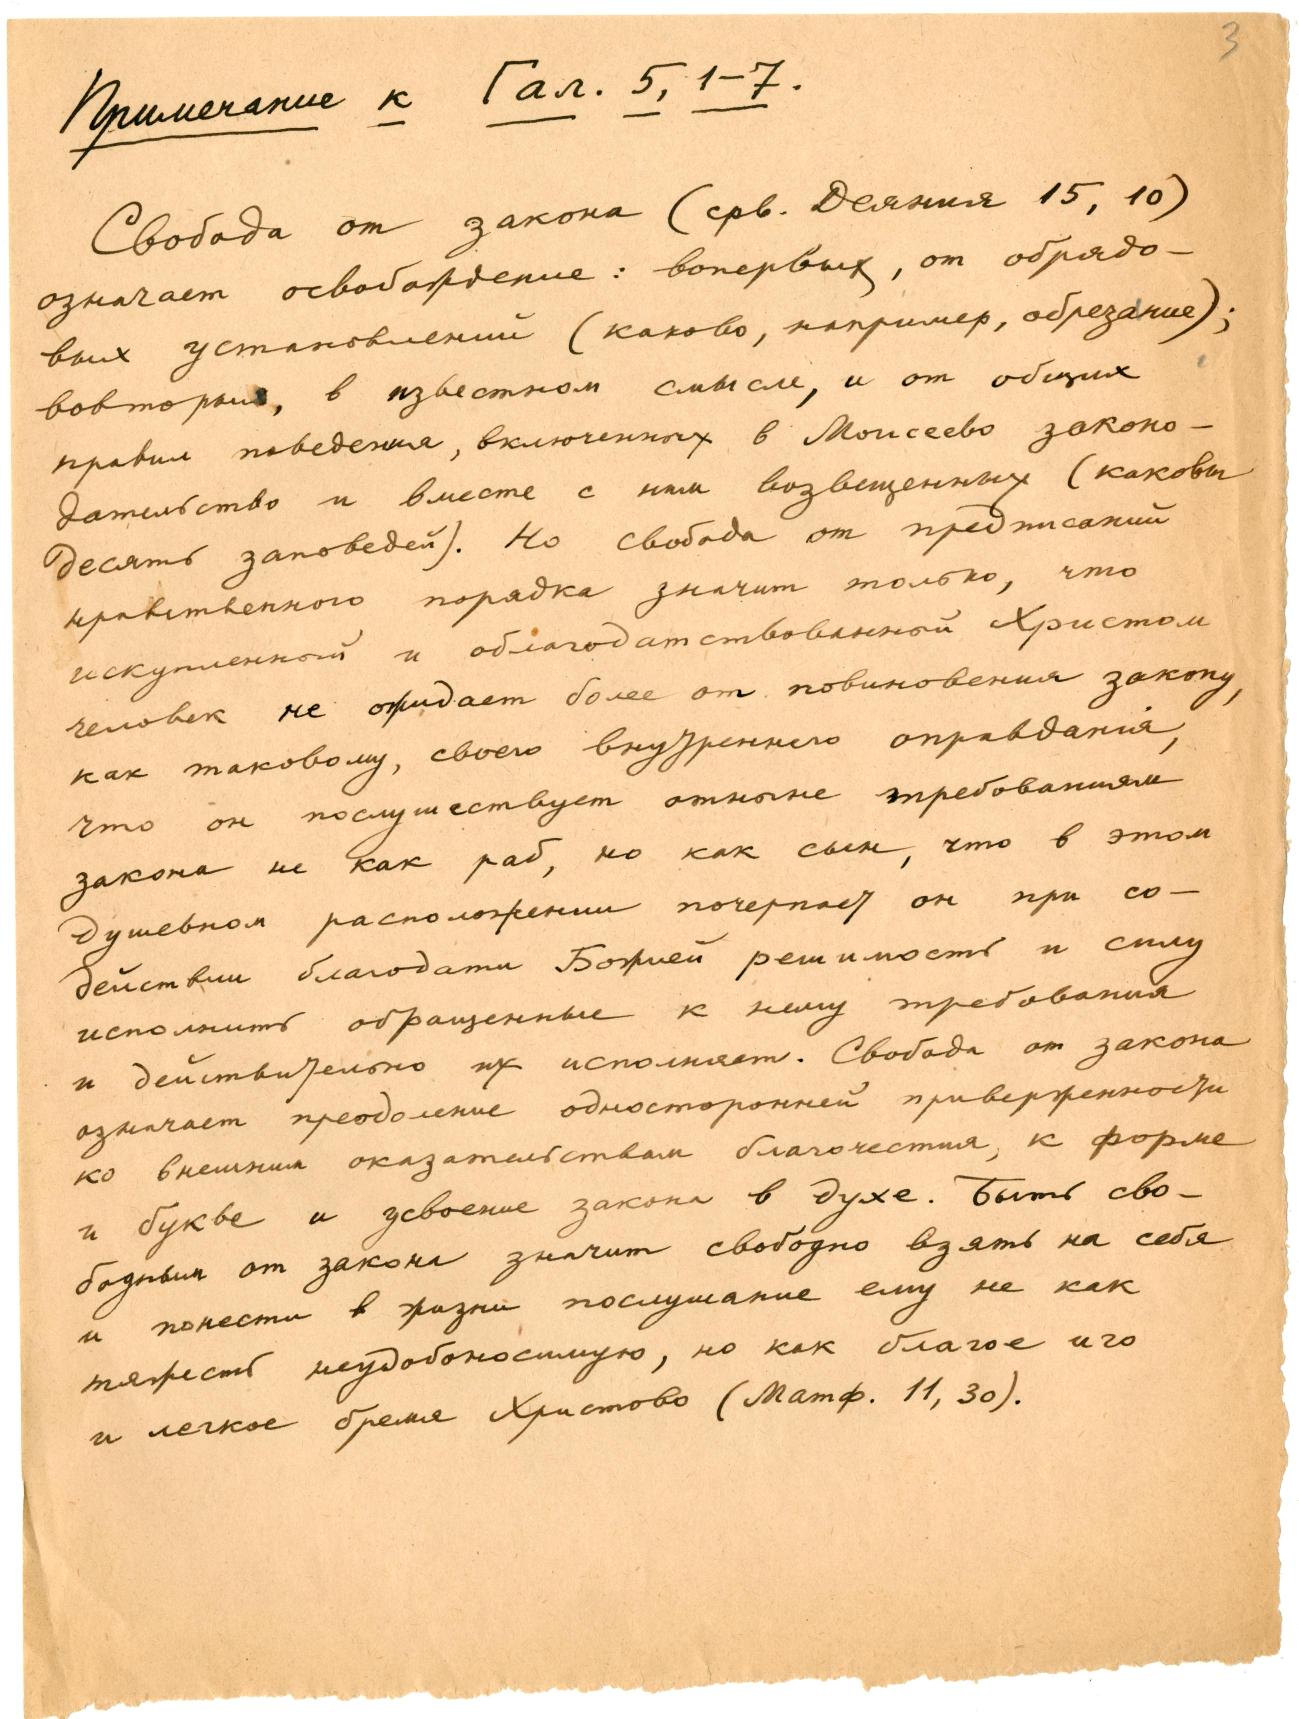 3
Примечание к Гал. 5, 1–7.
Свобода от закона (срв. Деяния 15, 10)
означает освобождение: вопервых, от обрядо–
вых установлений (каково, например, обрезание);
вовторых, в известном смысле, и от общих
правил поведения, включенных в Моисеево законо–
дательство и вместе с ним возвещенных (каковы
десять заповедей). Но свобода от предписаний
нравственного порядка значит только, что
искупленный и облагодатствованный Христом
человек не ожидает более от повиновения закону,
как таковому, своего внутреннего оправдания,
что он послушествует отныне требованиям
закона не как раб, но как сын, что в этом
душевном расположении почерпает он при со–
действии благодати Божией решимость и силу
исполнить обращенные к нему требования
и действительно их исполняет. Свобода от закона
означает преодоление односторонней приверженности
ко внешним оказательствам благочестия, к форме
и букве и усвоение закона в духе. Быть сво–
бодным от закона значит свободно взять на себя
и понести в жизни послушание ему не как
тяжесть неудобоносимую, но как благое иго
и легкое бремя Христово (Матф. 11, 30).